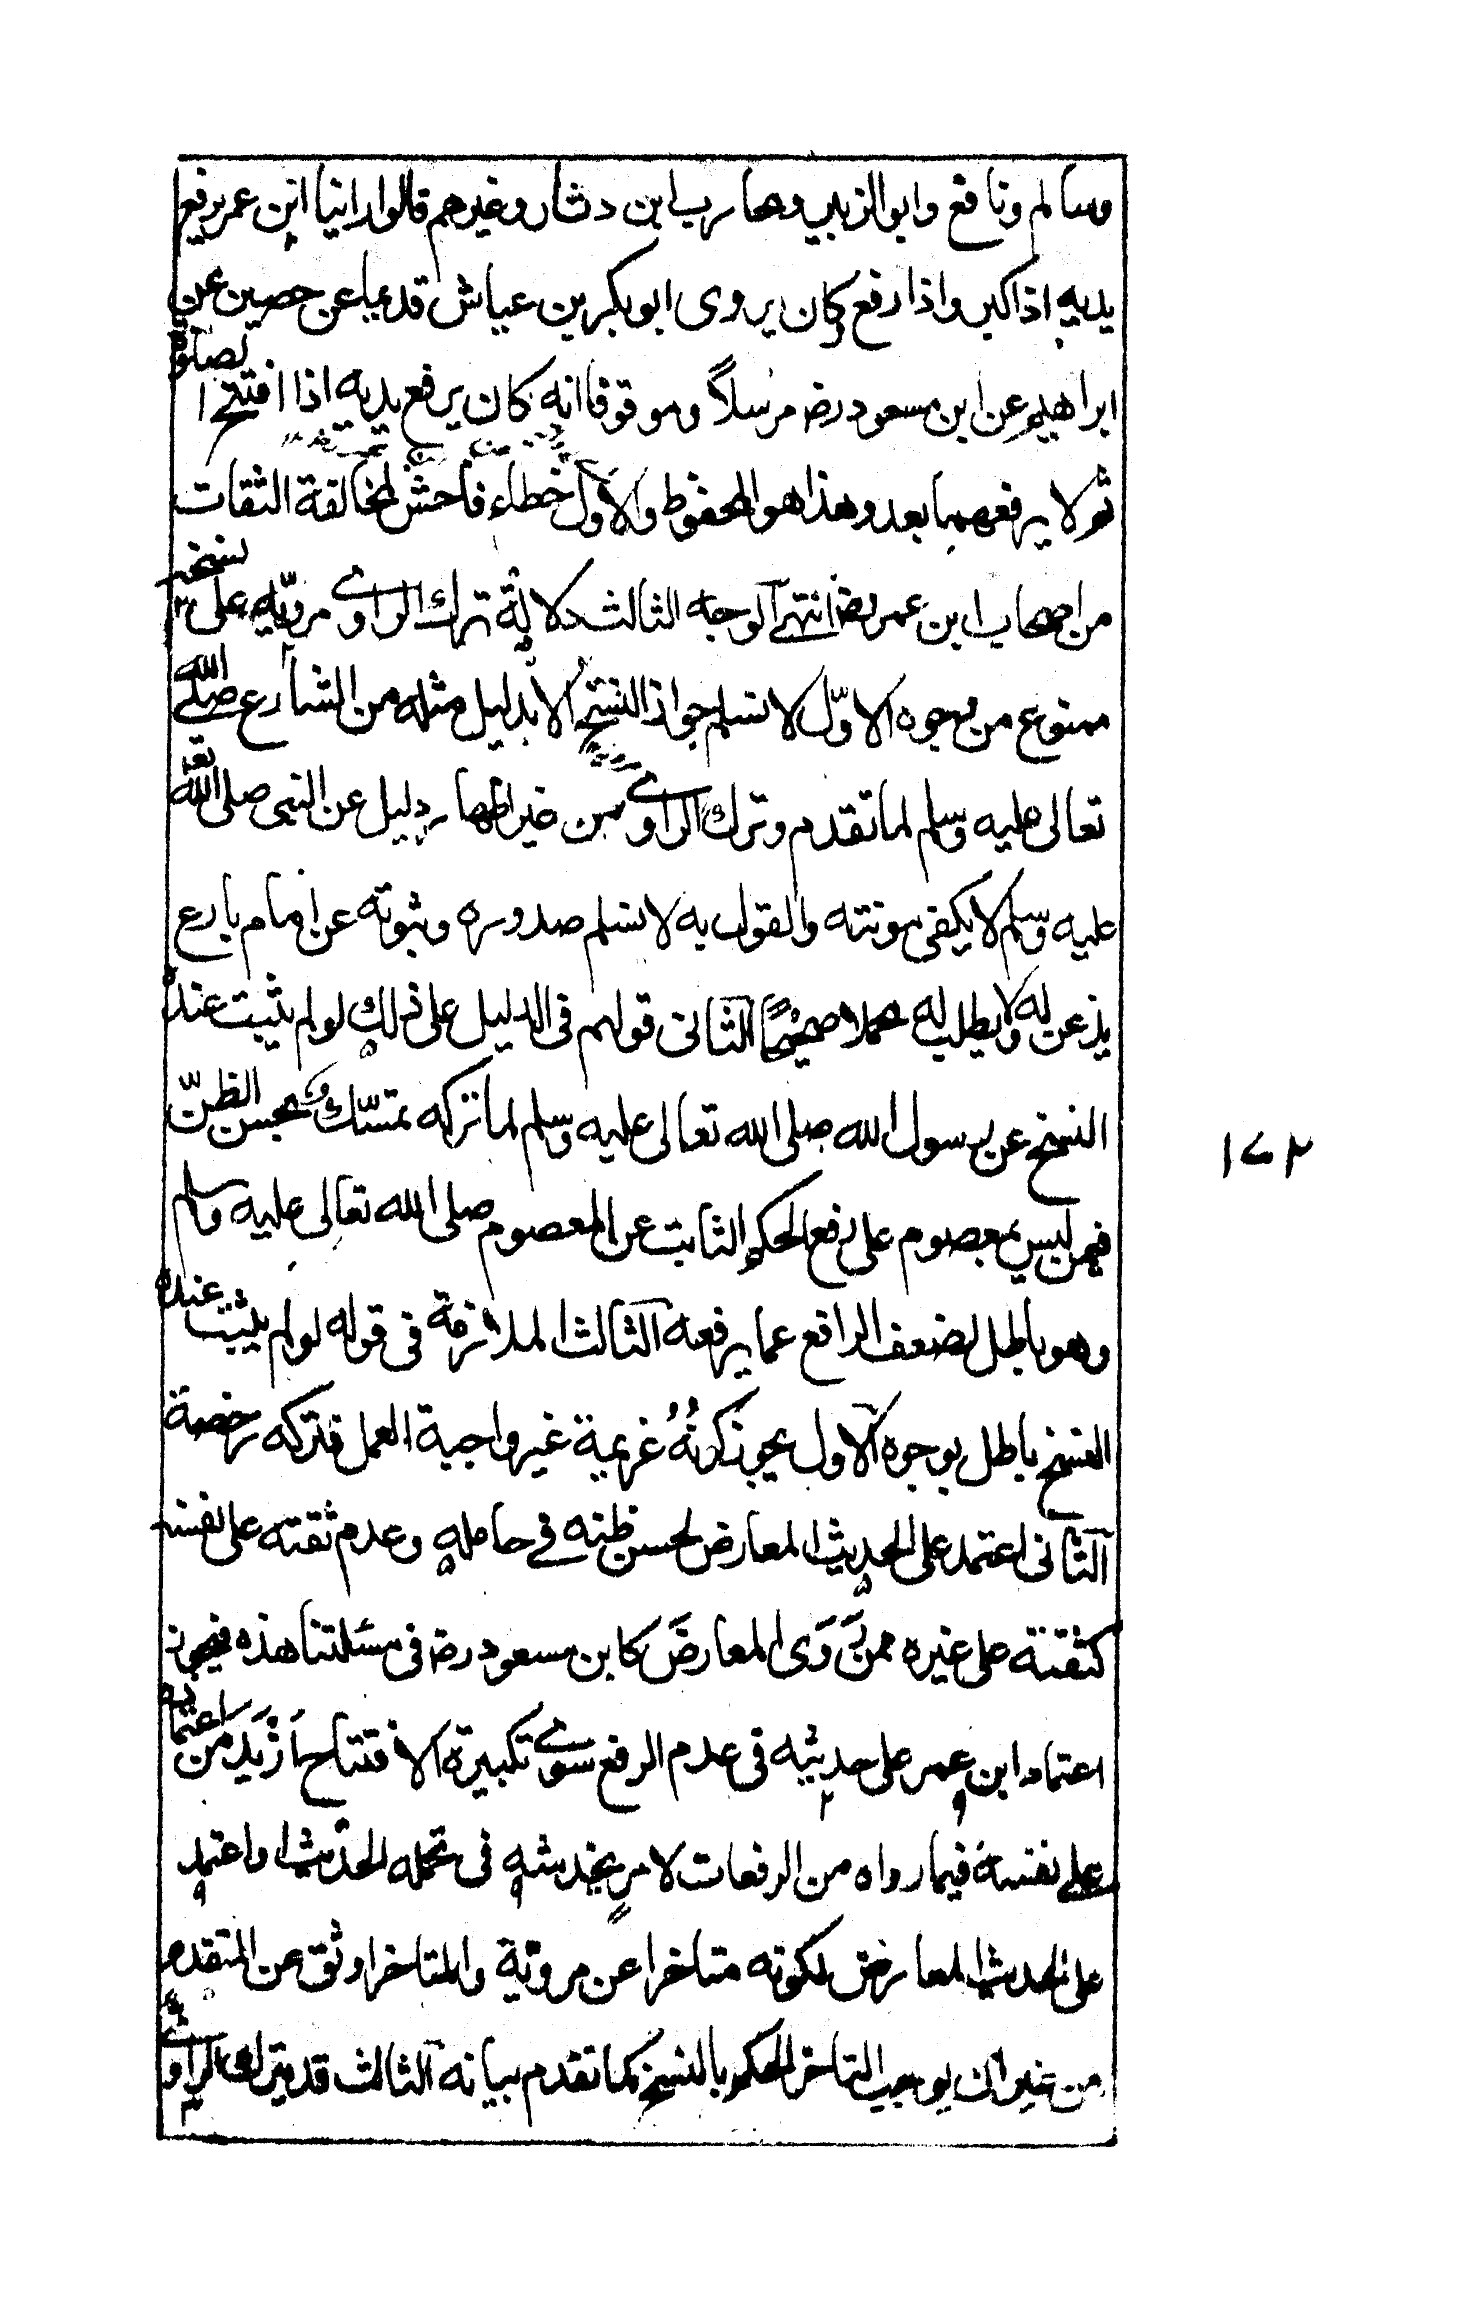 وسالم ونافع وابو الزبير ومحارب ابن دثار وغيرهم قالوا راينا ابن عمر يرفع
يديه اذا كبر واذا رفع وكان يروى ابو بكر بن عياش قديما عن حصين عن
ابراهيم عن ابن مسعود رض مرسلاً وموقوفا انه كان يرفع يديه اذا افتتح الصلوة
ثم لا يرفعهما بعد وهذا هو المحفوظ والاول خطاء فاحش لمخالفة الثقات
من اصحاب ابن عمر رض انتهى الوجه الثالث دلالة ترك الراوي مرويّه على نسخه
ممنوع من وجوه الاوّل لا نسلم جواز النسخ الا بدليل مثله من الشارع صلى الله
تعالى عليه وسلم لما تقدم وترك الراوي من غير اظهار دليل عن النبى صلى الله تعه
عليه وسلم لا يكفى مونته والقول به لا نسلم صدوره وثبوته عن امام بارع
يذعن له ولا يطلب له محملا صحيحًا الثانى قولهم فى الدليل على ذلك لو لم يثبت عنده
النسخ عن رسول الله صلى الله تعالى عليه وسلم لما تركه تمسّك بحسن الظنّ
فيمن ليس بمعصوم على رفع الحكم الثابت عن المعصوم صلى الله تعالى عليه وسلم
وهو باطل لضعف الرافع عما يرفعه الثالث الملازمة فى قوله لو لم يثبت عنده
النسخ باطل بوجوه الاول يجوز كونُهُ عزيمة غير واجبة العمل فتركه رخصة
الثانى اعتمد على الحديث المعارض لحسن ظنه في حامله وعدم ثقته على نفسه
كثقته على غيره ممن رَوَى المعارضَ كابن مسعود رض فى مسئلتنا هذه فيجوز
اعتماد ابن عمر على حديثه فى عدم الرفع سوى تكبيرة الافتتاح اَزْيَدَ مَن اعتماده
على نفسه فيما رواه من الرفعات لامرٍ يخدشه فى تحمله الحديث او اعتمد
على الحديث المعارض لكونه متاخرا عن مرويّه والمتاخر اوثق عن المتقدم
من غير ان يوجب التاخر الحكم بالنسخ كما تقدم بيانه الثالث قد يترك الراوي
١٧٢